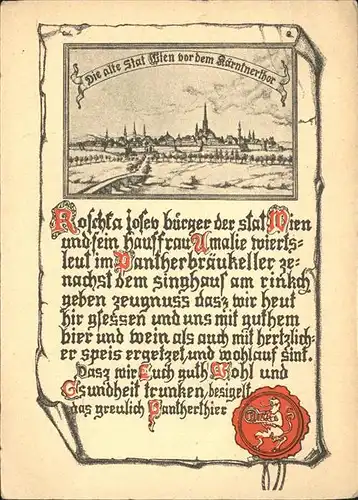 Die alte Stat Wien vor dem Kärntnerthor
Roschka Josev bürger der stat Wien
und sein hausfrau Amalie wierts-
leut im Pantherbräukeller ze-
nachst dem singhaus am rinkch
geben zeugnuss dasz wir heut
hir gsessen und uns mit guthem
bier und wein als auch mit hertzlich-
er speis ergetzel, und wohlauf sint.
Dasz wir Euch guth Wohl und
Gsundheit trunken, besigelt
das greulich Pantherthier